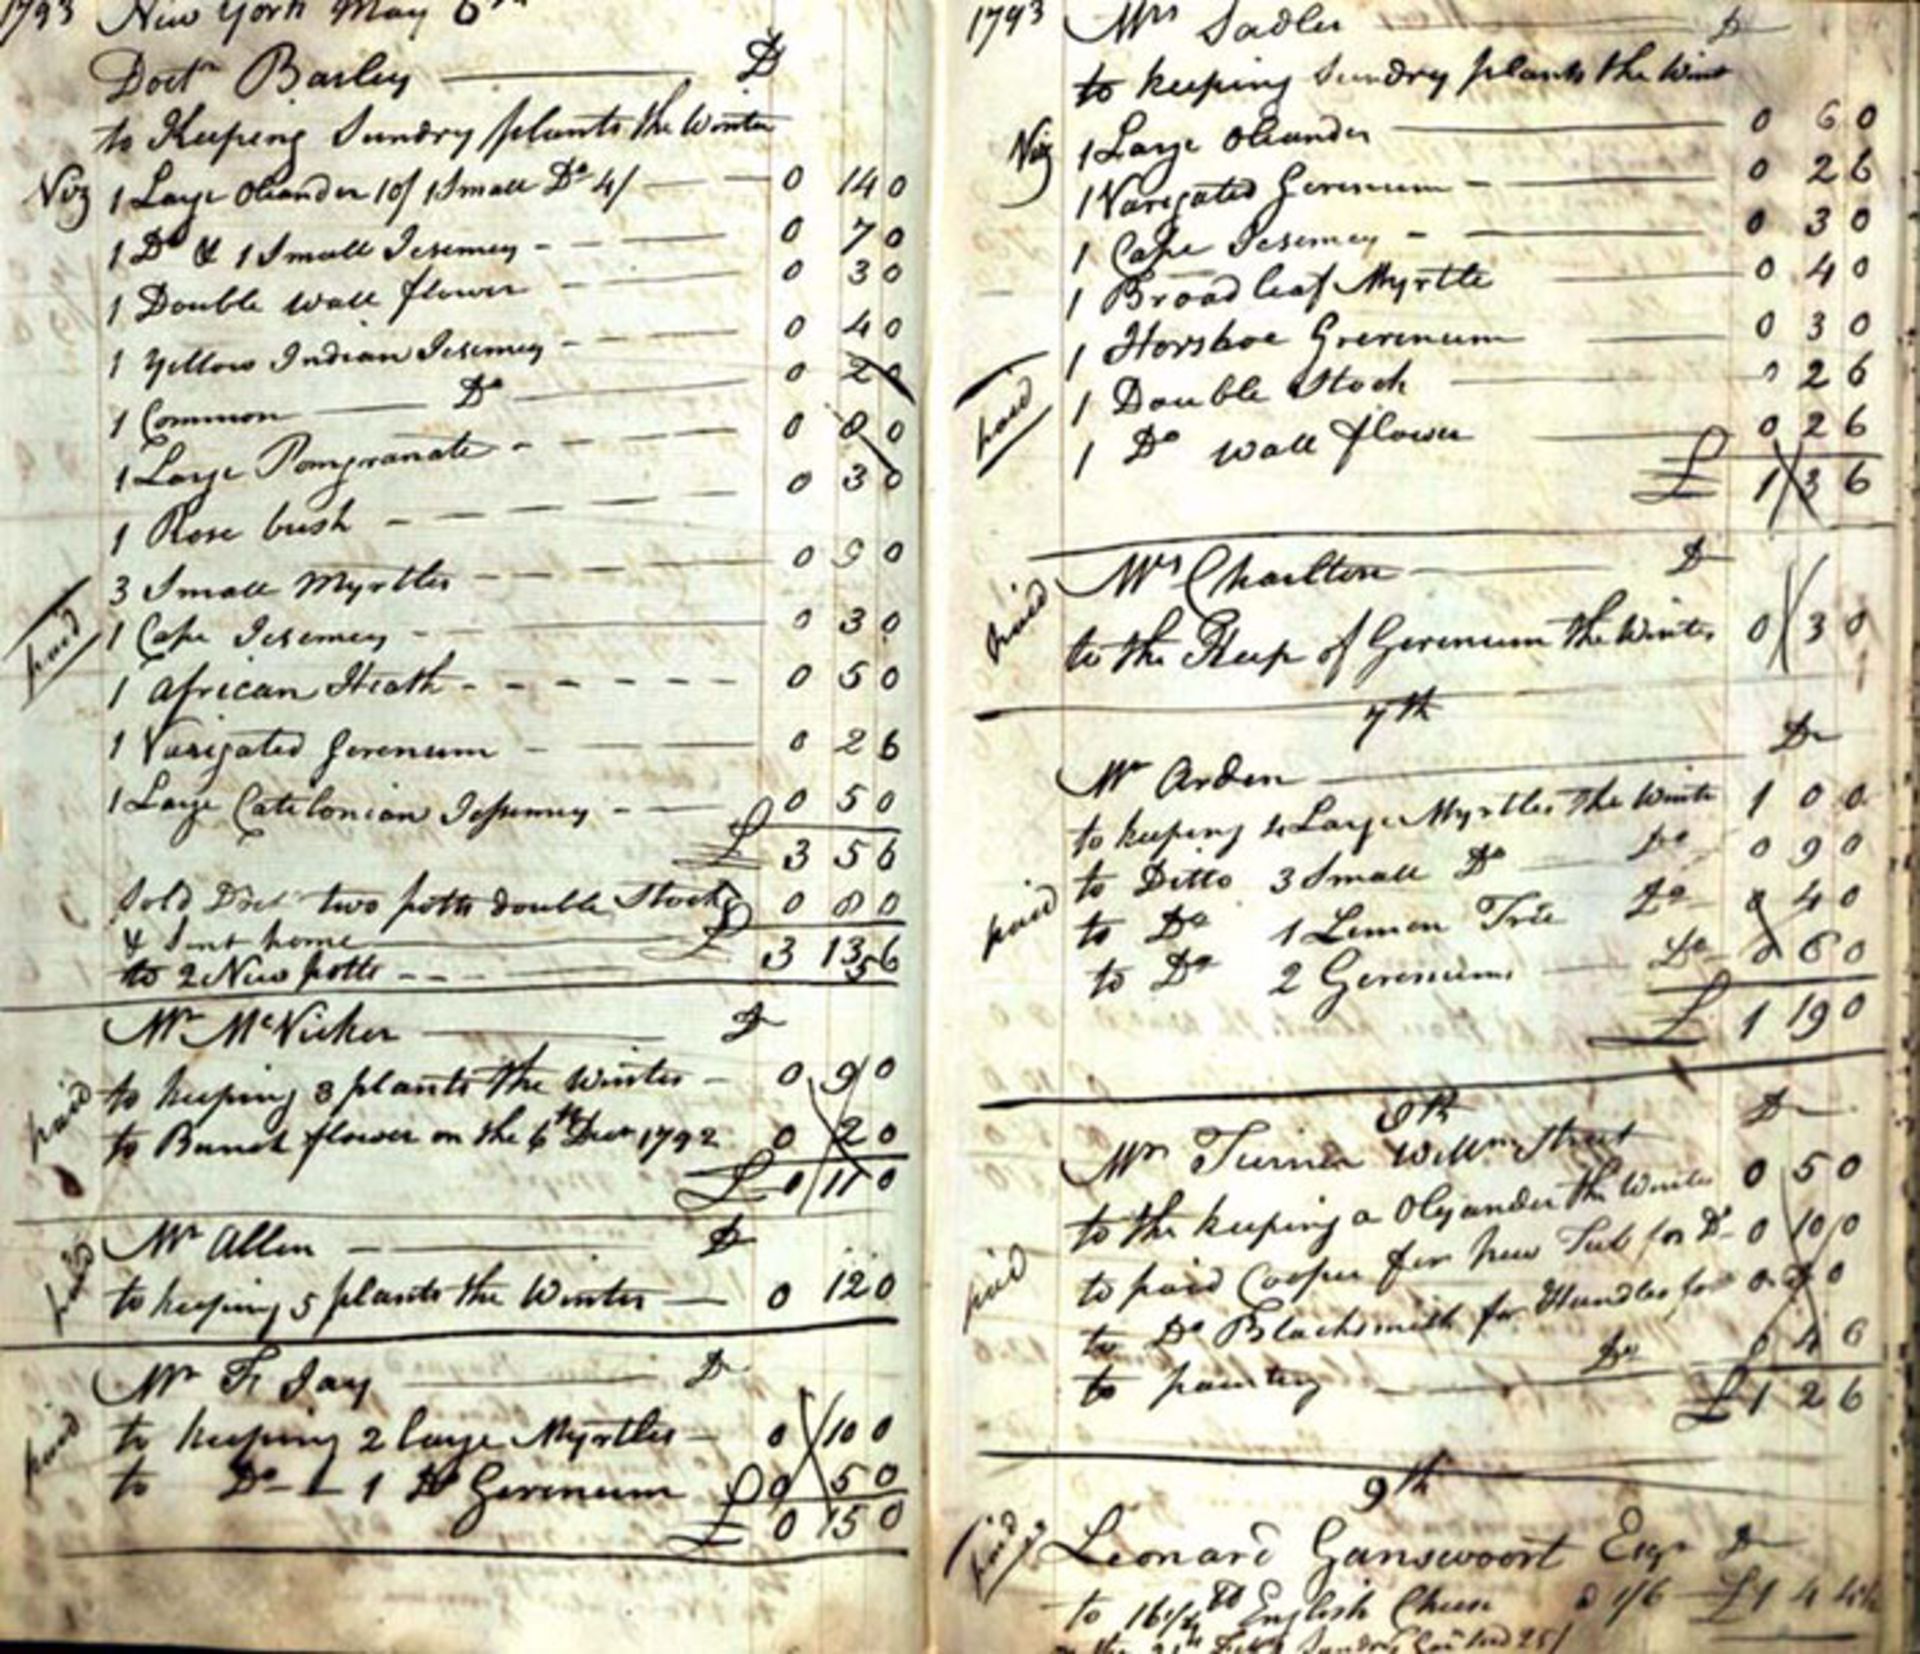 1793 New York May 6th
Doctr Barley Dr
to Keeping Sundry plants the Winter
Viz 1 Large Oleander 10/ 1 Small Do 4/ 0 14 0
1 Do & 1 Small Jesemey 0 7 0
1 Double wall flower 0 3 0
1 Yellow Indian Jesemey 0 4 0
1 Common Do 0 2 0
1 Large Pomgranate 0 8 0
1 Rose bush 0 3 0
3 Small Myrtles 0 9 0
paid
1 Cape Jesemey 0 3 0
1 African Heath 0 5 0
1 Varigated Gerenum 0 2 6
1 Large Catelonian Jessemey 0 5 0
£ 3 5 6
Sold Doct two potts double Stock 0 8 0
& Sent home
to 2 New potts £ 3 13 6
Mr McVicker Dr
paid
to keeping 3 plants the Winter 0 9 0
to Bunch flower on the 6th Decr 1792 0 2 0
£ 0 11 0
Mr Allen Dr
paid
to keeping 5 plants the Winter 0 12 0
Mr Fr Jay Dr
paid
to keeping 2 large Myrtles 0 10 0
to Do 1 Do Gerenum 0 5 0
£ 0 15 0
1793 Mrs Sadler Dr
to keeping Sundry plants the Wint
Viz 1 Large Oleander 0 6 0
1 Varigated Gerenum 0 2 6
1 Cape Jesemey 0 3 0
1 Broad leaf Myrtle 0 4 0
1 Horshoe Grerenum 0 3 0
paid
1 Double Stock 0 2 6
1 Do wall flower 0 2 6
£ 1 3 6
Mrs Charlton Dr
paid
to the Keep of Gerenum the Winter 0 3 0
7th
Mr Arden Dr
to keeping 4 Large Myrtles the Winte 1 0 0
to Ditto 3 Small Do Do 0 9 0
paid
to Do 1 Lemon Tree Do 0 4 0
to Do 2 Gerenums Do 0 6 0
£ 1 19 0
8th
Mrs Turner Willm Street Dr
to the keeping a Olyander the Winter 0 5 0
to paid Cooper for New Tub for Do 0 10 0
paid
to Do Blacksmith for Handles for
to painting Do 0 4 6
£ 1 2 6
9th
Leonard Ganswoort Esqr Dr
paid
to 16 1/4 lb English Cheese a 1/6 £1 4